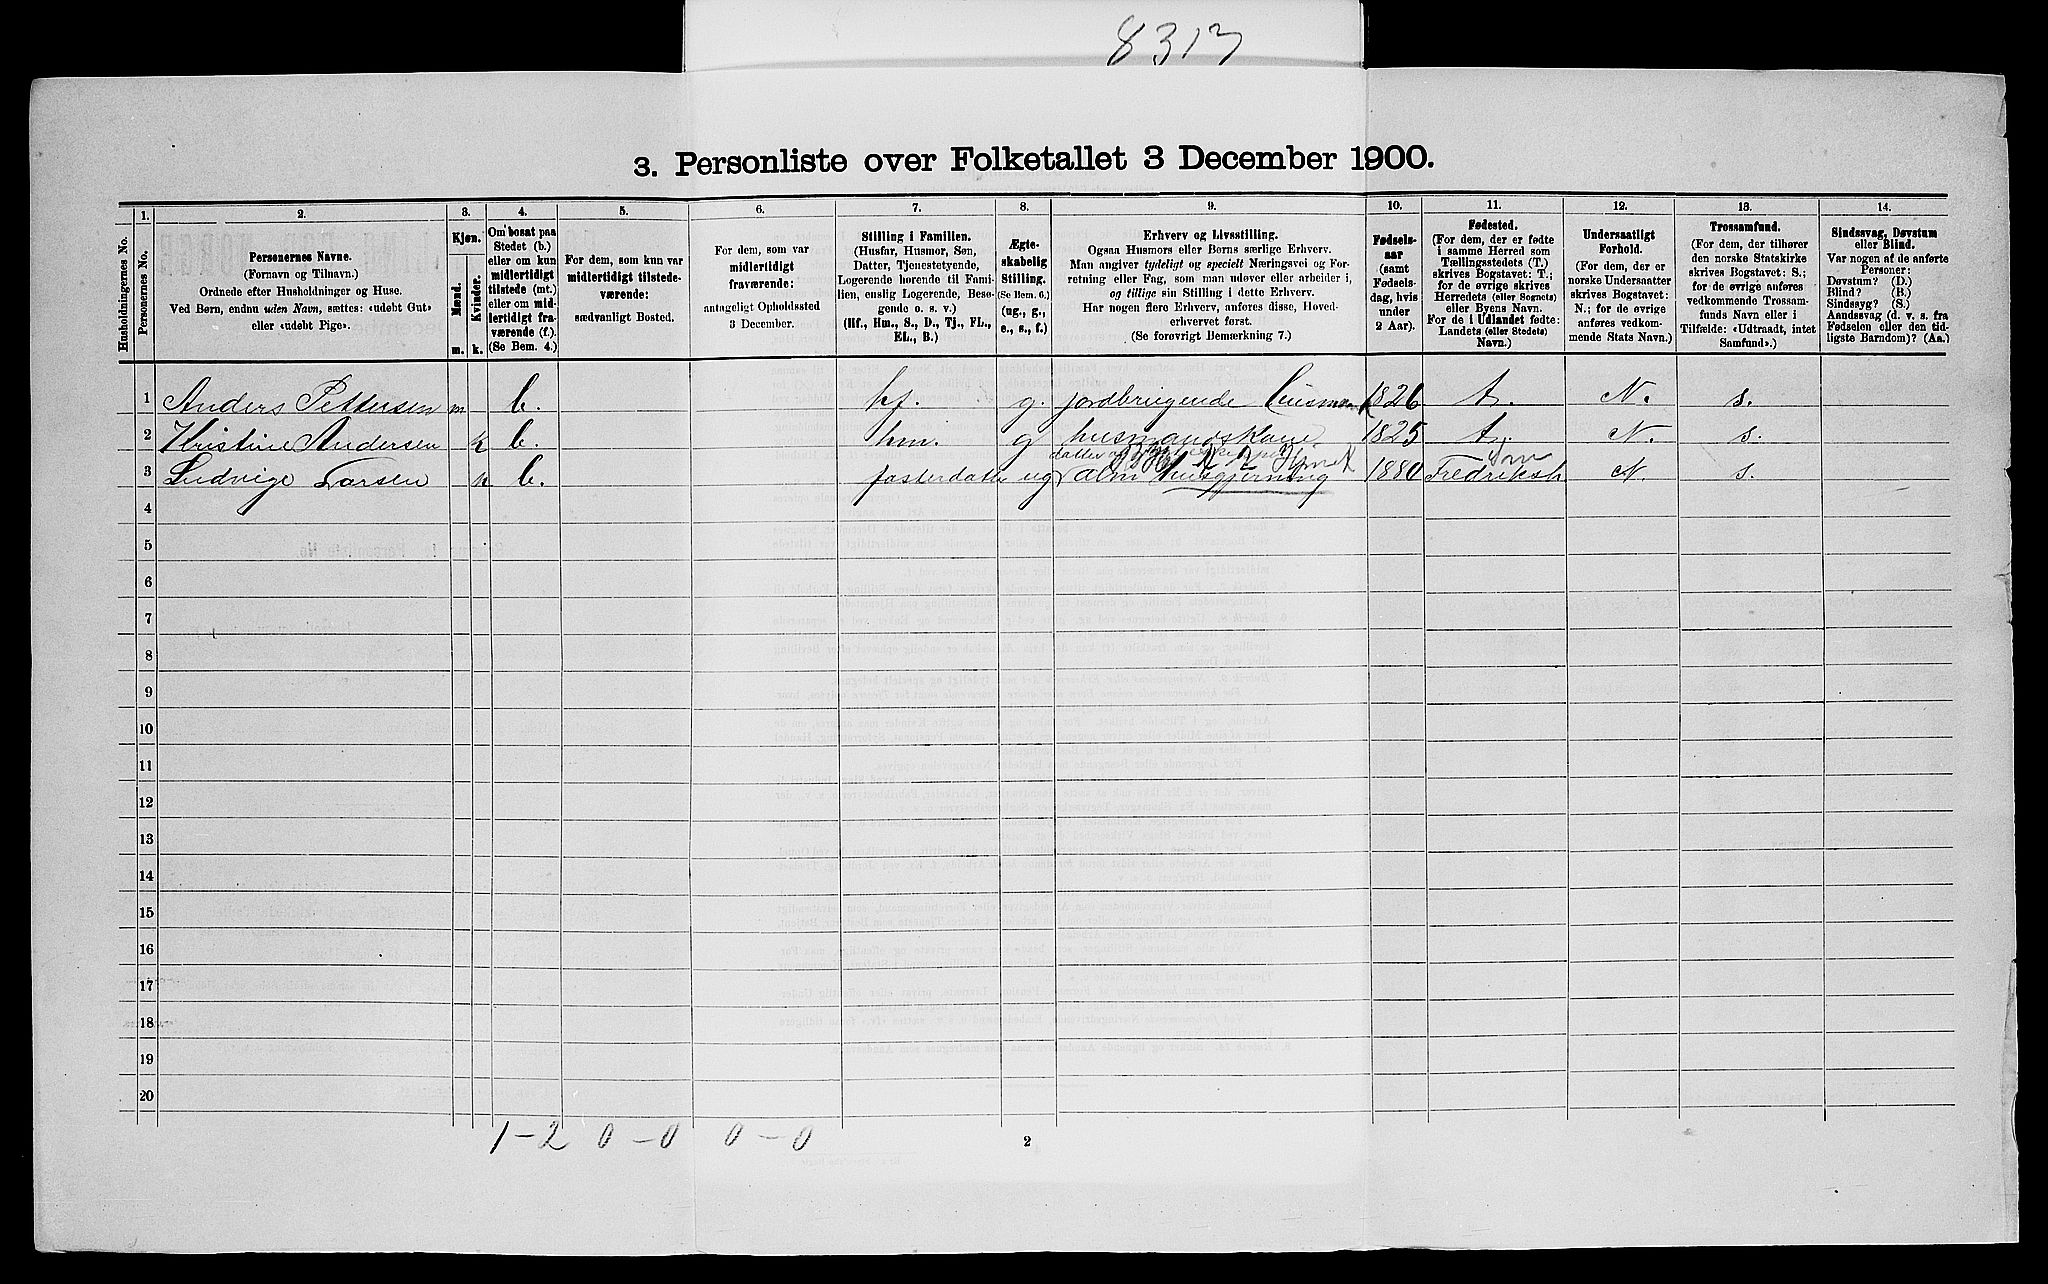 8313
3. Personliste over Folketallet 3 December 1900.
1. 2. 3. 4. 5. 6. 7. 8. 9. 10. 11. 12. 13. 14.
Husholdningernes No.
Personernes No.
Personernes Navne.
(Fornavn og Tilnavn.)
Ordnede efter Husholdninger og Huse.
Ved Børn, endnu uden Navn, sættes: «udøbt Gut»
eller «udøbt Pige».
Kjøn.
Mænd.
Kvinder.
m. k.
Om bosat paa
Stedet (b.)
eller om kun
midlertidigt
tilstede (mt.)
eller om mid-
lertidigt fra-
værende (f.).
(Se Bem. 4.)
For dem, som kun var
midlertidigt tilstede-
værende:
sædvanligt Bosted.
For dem, som var
midlertidigt
fraværende:
antageligt Opholdssted
3 December.
Stilling i Familien.
(Husfar, Husmor, Søn,
Datter, Tjenestetyende,
Logerende hørende til Fami-
lien, enslig Logerende, Besø-
gende o. s. v.)
(Hf., Hm., S., D., Tj., FL.,
EL., B.)
Ægte-
skabelig
Stilling.
(Se Bem. 6.)
(ug., g.,
e., s., f.)
Erhverv og Livsstilling.
Ogsaa Husmors eller Børns særlige Erhverv.
Man angiver tydeligt og specielt Næringsvei og For-
retning eller Fag, som man udøver eller arbeider i,
og tillige sin Stilling i dette Erhverv.
Har nogen flere Erhverv, anføres disse, Hoved-
erhvervet først.
(Se forøvrigt Bemærkning 7.)
Fødsels-
aar
(samt
Fødsels-
dag, hvis
under
2 Aar).
Fødested.
(For dem, der er fødte
i samme Herred som
Tællingsstedets (T.)
skrives Bogstavet: T.;
for de øvrige skrives
Herredets (eller Sognets)
eller Byens Navn.
For de i Udlandet fødte:
Landets (eller Stedets)
Navn.)
Undersaatligt
Forhold.
(For dem, der er
norske Undersaatter
skrives Bogstavet:
N.; for de øvrige
anføres vedkom-
mende Stats Navn.)
Trossamfund.
(For dem, der tilhører
den norske Statskirke
skrives Bogstavet: S.;
for de øvrige anføres
vedkommende Trossam-
funds Navn eller i
Tilfælde: «Udtraadt, intet
Samfund».)
Sindssvag, Døvstum
eller Blind.
Var nogen af de anførte
Personer:
Døvstum? (D.)
Blind? (B.)
Sindssyg? (S.)
Aandssvag (d. v. s. fra
Fødselen eller den tid-
ligste Barndom)? (Aa.)
1 Anders Pettersen m b. hf. g. jordbrugende 1826 t. N. s.
2 Kristine Andersen k b. hm. g husmandskone 1825 t. N. s.
3 Ludvige Larsen k b. fosterdatter ug alm husgjerning 1880 Fredriksh N. s.
4
5
6
7
8
9
10
11
12
13
14
15
16
17
18
19
20
1–2 0–0 0–0
2